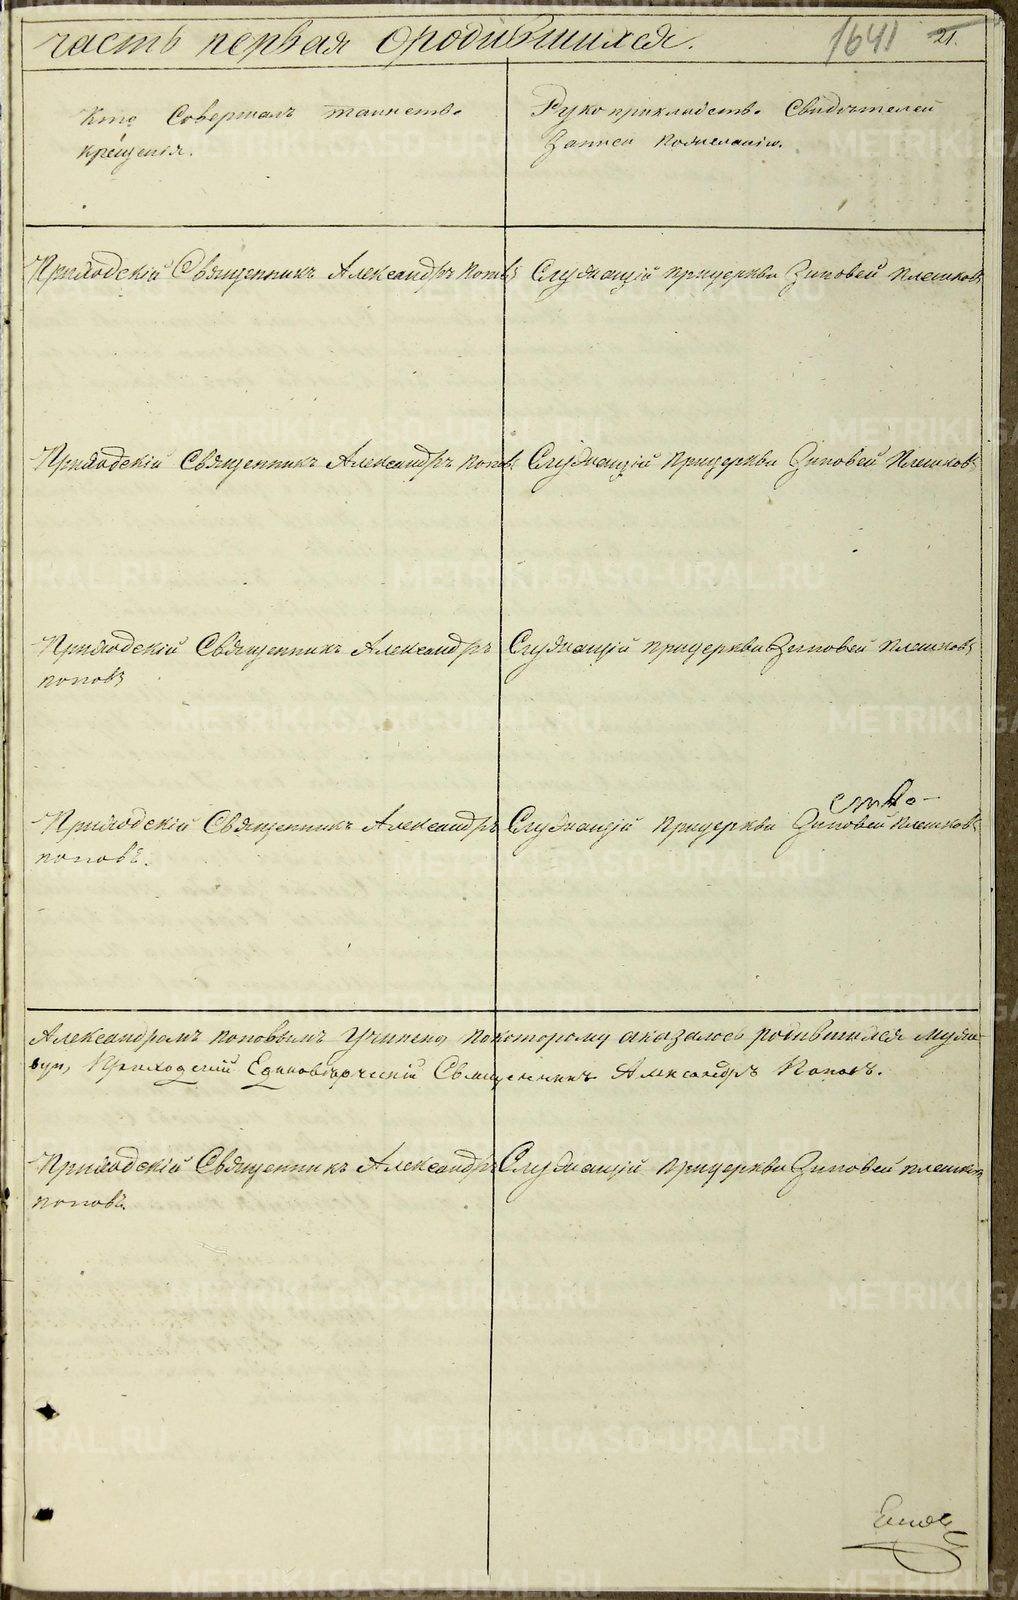 часть первая ородившихся.
1641 21.
Кто Совершалъ таинство
крещенія.
Рукоприкладство Свидѣтелей
Записи пожеланію.
Приходскій Священникъ Александръ Поповъ
Служащій прицеркви Зиновей Плешковъ
Приходскій Священникъ Александръ Поповъ
Служащій прицеркви Зиновей Плешковъ
Приходскій Священникъ Александръ
поповъ
Служащій прицеркви Зиновей Плешковъ
Приходскій Священникъ Александръ
поповъ.
Служащій прицеркви Зиновей Плешковъ
Александромъ поповымъ Учинено покоторому аказалось
Приходскій Единовѣрческій Священникъ Александръ Поповъ.
Приходскій Священникъ Александръ
поповъ.
Служащій прицеркви Зиновей плешков
METRIKI.GASO-URAL.RU